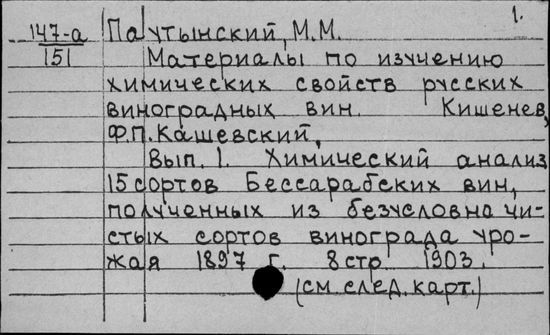 1.
147-а Паутынский, М.М.
151 Материалы по изучению
химических свойств русских
виноградных вин. Кишенев,
Ф.П. Кашевский,
Вып. 1. Химический анализ
15 сортов Бессарабских вин,
полученных из безусловна чи-
стых сортов винограда уро-
жая 1897 г. 8 стр 1903.
(см. след. карт.)